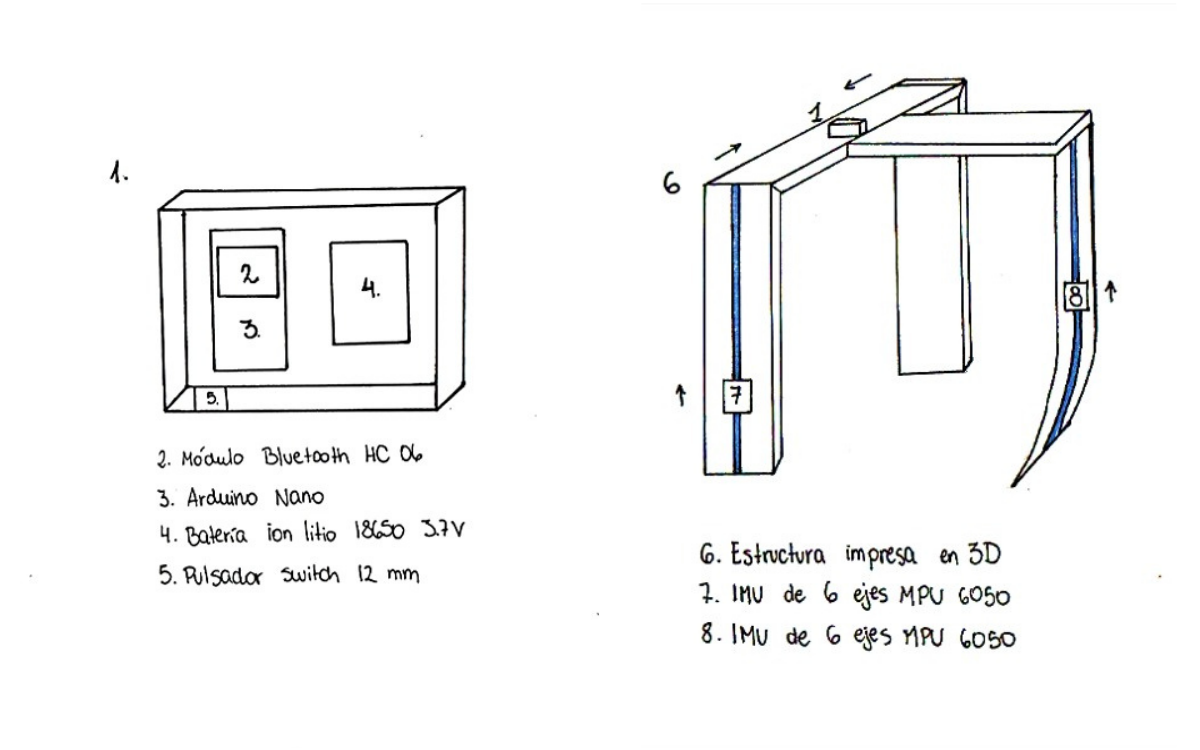 1.
2
3.
4.
5.
2. Módulo Bluetooth HC 06
3. Arduino Nano
4. Batería ion litio 18650 3.7V
5. Pulsador switch 12 mm
1
6
7
8
6. Estructura impresa en 3D
7. IMU de 6 ejes MPU 6050
8. IMU de 6 ejes MPU 6050